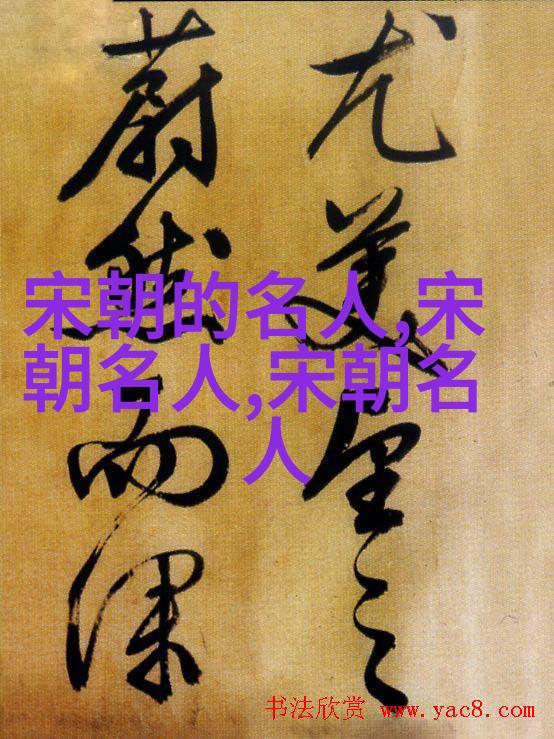 尤美望之
蔚然而深
宋朝的名人,宋
朝名人,宋朝名
人
书法欣赏 www.yac8.com